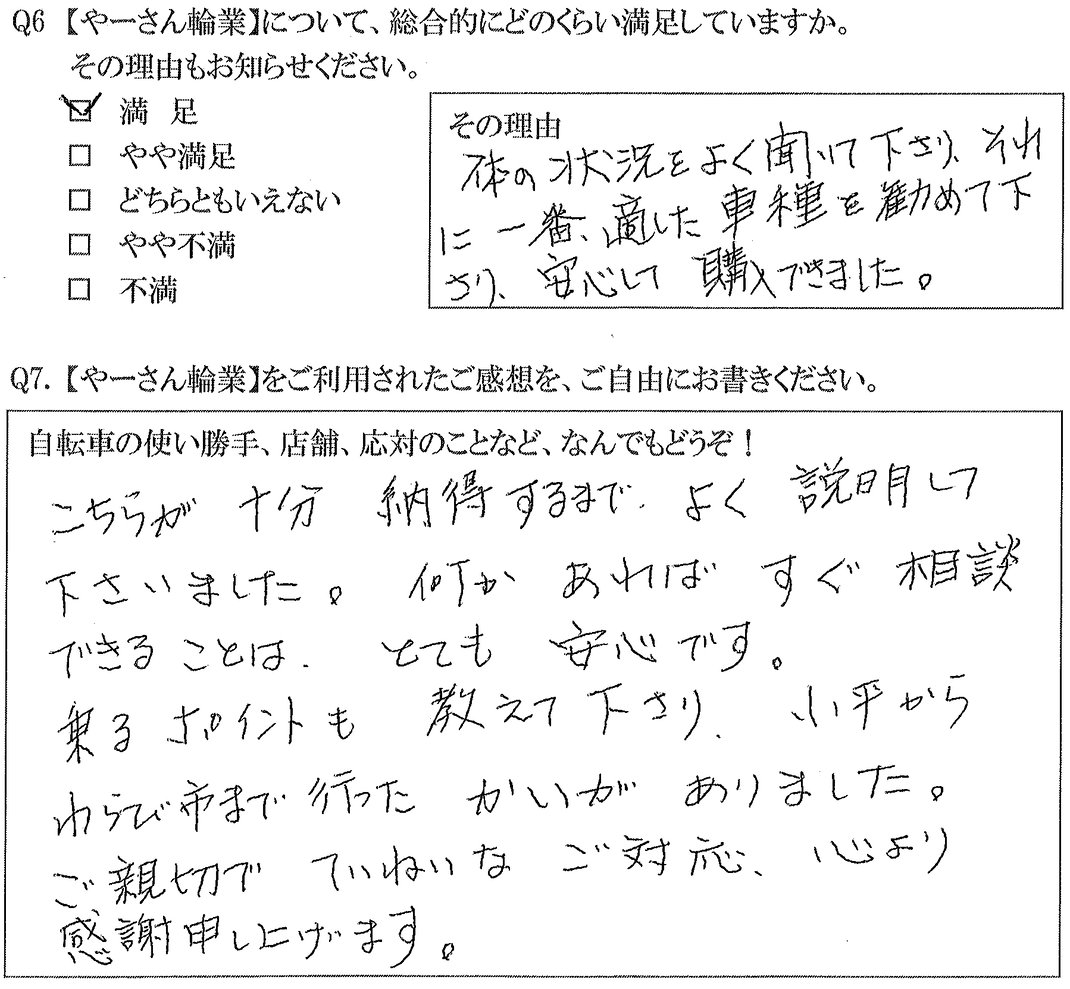 Q6 【やーさん輪業】について、総合的にどのくらい満足していますか。
その理由もお知らせください。
☑ 満 足
□ やや満足
□ どちらともいえない
□ やや不満
□ 不満
その理由
体の状況をよく聞いて下さり、それ
に一番、適した車種を勧めて下
さり、安心して購入できました。
Q7.【やーさん輪業】をご利用されたご感想を、ご自由にお書きください。
自転車の使い勝手、店舗、応対のことなど、なんでもどうぞ！
こちらが 十分 納得するまで、よく 説明して
下さいました。 何か あれば すぐ 相談
できることは、とても 安心です。
乗る ポイントも 教えて下さり、小平から
わらび市まで行った かいが ありました。
ご親切で ていねいな ご対応、心より
感謝申し上げます。